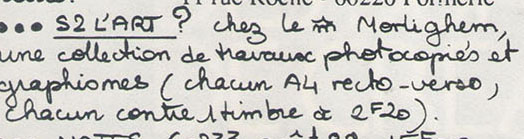 ••• S2 L'ART ? chez le Morlighem,
une collection de travaux photocopiés et
graphismes (chacun A4 recto-verso,
chacun contre 1 timbre à 2F20).